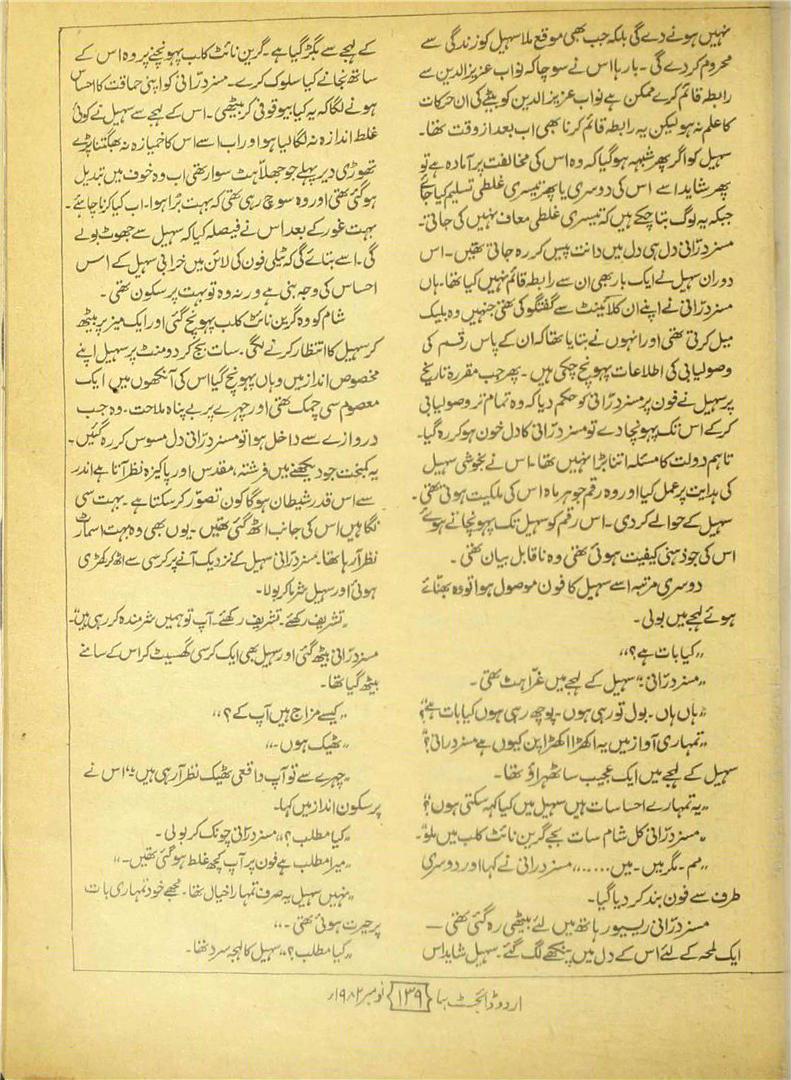 نہیں ہونے دے گی بلکہ جب بھی موقع ملا سہیل کو زندگی سے
محروم کر دے گی۔ بارہا اس نے سوچا کہ نواب عزیزالدین سے
رابطہ قائم کرے ممکن ہے نواب عزیزالدین کو بیٹے کی ان حرکات
کا علم نہ ہو لیکن یہ رابطہ قائم کرنا بھی اب بعد از وقت تھا۔
سہیل کو اگر پھر شبہہ ہو گیا کہ وہ اس کی مخالفت پر آمادہ ہے تو
پھر شاید اسے اس کی دوسری یا پھر تیسری غلطی تسلیم کیا جائے
جبکہ یہ لوگ بتا چکے ہیں کہ تیسری غلطی معاف نہیں کی جاتی۔
مسز درّانی دل ہی دل میں دانت پیس کر رہ جاتی تھیں۔ اس
دوران سہیل نے ایک بار بھی ان سے رابطہ قائم نہیں کیا تھا۔ ہاں
مسز درّانی نے اپنے ان کلائینٹ سے گفتگو کی تھی جنہیں وہ بلیک
میل کرتی تھی اور انہوں نے بتایا تھا کہ ان کے پاس رقم کی
وصولیابی کی اطلاعات پہونچ چکی ہیں۔ پھر جب مقررہ تاریخ
پر سہیل نے فون پر مسز درّانی کو حکم دیا کہ وہ تمام تر وصولیابی
کر کے اس تک پہونچا دے تو مسز درّانی کا دل خون ہو کر رہ گیا۔
تاہم دولت کا مسئلہ اتنا بڑا نہیں تھا۔ اس نے بخوشی سہیل
کی ہدایت پر عمل کیا اور وہ رقم جو ہر ماہ اس کی ملکیت ہوتی تھی۔
سہیل کے حوالے کر دی۔ اس رقم کو سہیل تک پہونچاتے ہوئے
اس کی جو ذہنی کیفیت ہوئی تھی وہ ناقابل بیان تھی۔
دوسری مرتبہ اسے سہیل کا فون موصول ہوا تو وہ بھنّائے
ہوئے لہجے میں بولی۔
”کیا بات ہے؟“
”مسز درّانی۔“ سہیل کے لہجے میں غرّاہٹ تھی۔
”ہاں ہاں۔ بول تو رہی ہوں۔ پوچھ رہی ہوں کیا بات ہے؟“
”تمہاری آواز میں یہ اکھڑا اکھڑا پن کیوں ہے مسز درانی؟“
سہیل کے لہجے میں ایک عجیب سا ٹھہراؤ تھا۔
”یہ تمہارے احساسات ہیں سہیل میں کیا کہہ سکتی ہوں؟“
”مسز درّانی کل شام سات بجے گرین نائٹ کلب میں ملو۔“
”مم۔ مگر میں۔ میں......“ مسز درانی نے کہا اور دوسری
طرف سے فون بند کر دیا گیا۔
مسز درّانی ریسیور ہاتھ میں لئے بیٹھی رہ گئی تھی —
ایک لمحہ کے لئے اس کے دل میں پنکھے لگ گئے۔ سہیل شاید اس
کے لہجے سے بگڑ گیا ہے۔ گرین نائٹ کلب پہونچنے پر وہ اس کے
ساتھ نجانے کیا سلوک کرے۔ مسز درّانی کو اپنی حماقت کا احساس
ہونے لگا کہ یہ کیا بیوقوفی کر بیٹھی۔ اس کے لہجے سے سہیل نے کوئی
غلط اندازہ نہ لگا لیا ہو اور اب اسے اس کا خمیازہ نہ بھگتنا پڑے
تھوڑی دیر پہلے جو جھلّاہٹ سوار تھی اب وہ خوف میں تبدیل
ہو گئی تھی اور وہ سوچ رہی تھی کہ بہت بُرا ہوا۔ اب کیا کرنا چاہئے۔
بہت غور کے بعد اس نے فیصلہ کیا کہ سہیل سے جھوٹ بولے
گی۔ اسے بتائے گی کہ ٹیلی فون کی لائن میں خرابی سہیل کے اس
احساس کی وجہ بنی ہے ورنہ وہ تو بہت پر سکون تھی۔
شام کو وہ گرین نائٹ کلب پہونچ گئی اور ایک میز پر بیٹھ
کر سہیل کا انتظار کرنے لگی۔ سات بج کر دو منٹ پر سہیل اپنے
مخصوص انداز میں وہاں پہونچ گیا اس کی آنکھوں میں ایک
معصوم سی چمک تھی اور چہرے پر بے پناہ ملاحت۔ وہ جب
دروازے سے داخل ہوا تو مسز درّانی دل مسوس کر رہ گئیں۔
یہ کمبخت جو دیکھنے میں فرشتہ، مقدس اور پاکیزہ نظر آتا ہے اندر
سے اس قدر شیطان ہوگا کون تصوّر کر سکتا ہے۔ بہت سی
نگاہیں اس کی جانب اٹھ گئی تھیں۔ یوں بھی وہ بہت اسمارٹ
نظر آ رہا تھا۔ مسز درّانی سہیل کے نزدیک آنے پر کرسی سے اٹھ کھڑی
ہوئی اور سہیل شرما کر بولا۔
”تشریف رکھئے۔ تشریف رکھئے۔ آپ تو ہمیں شرمندہ کر رہی ہیں۔“
مسز درّانی بیٹھ گئی اور سہیل بھی ایک کرسی گھسیٹ کر اس کے سامنے
بیٹھ گیا تھا۔
”کیسے مزاج ہیں آپ کے؟“
”ٹھیک ہوں۔“
”چہرے سے تو آپ واقعی ٹھیک نظر آ رہی ہیں۔“ اس نے
پر سکون انداز میں کہا۔
”کیا مطلب؟“ مسز درّانی چونک کر بولی۔
”میرا مطلب ہے فون پر آپ کچھ غلط ہو گئی تھیں۔“
”نہیں سہیل یہ صرف تمہارا خیال تھا۔ مجھے خود تمہاری بات
پر حیرت ہوئی تھی۔“
”کیا مطلب؟“ سہیل کا لہجہ سرد تھا۔
اردو ڈائجسٹ ہما {۱۳۹} نومبر ۱۹۸۲ء